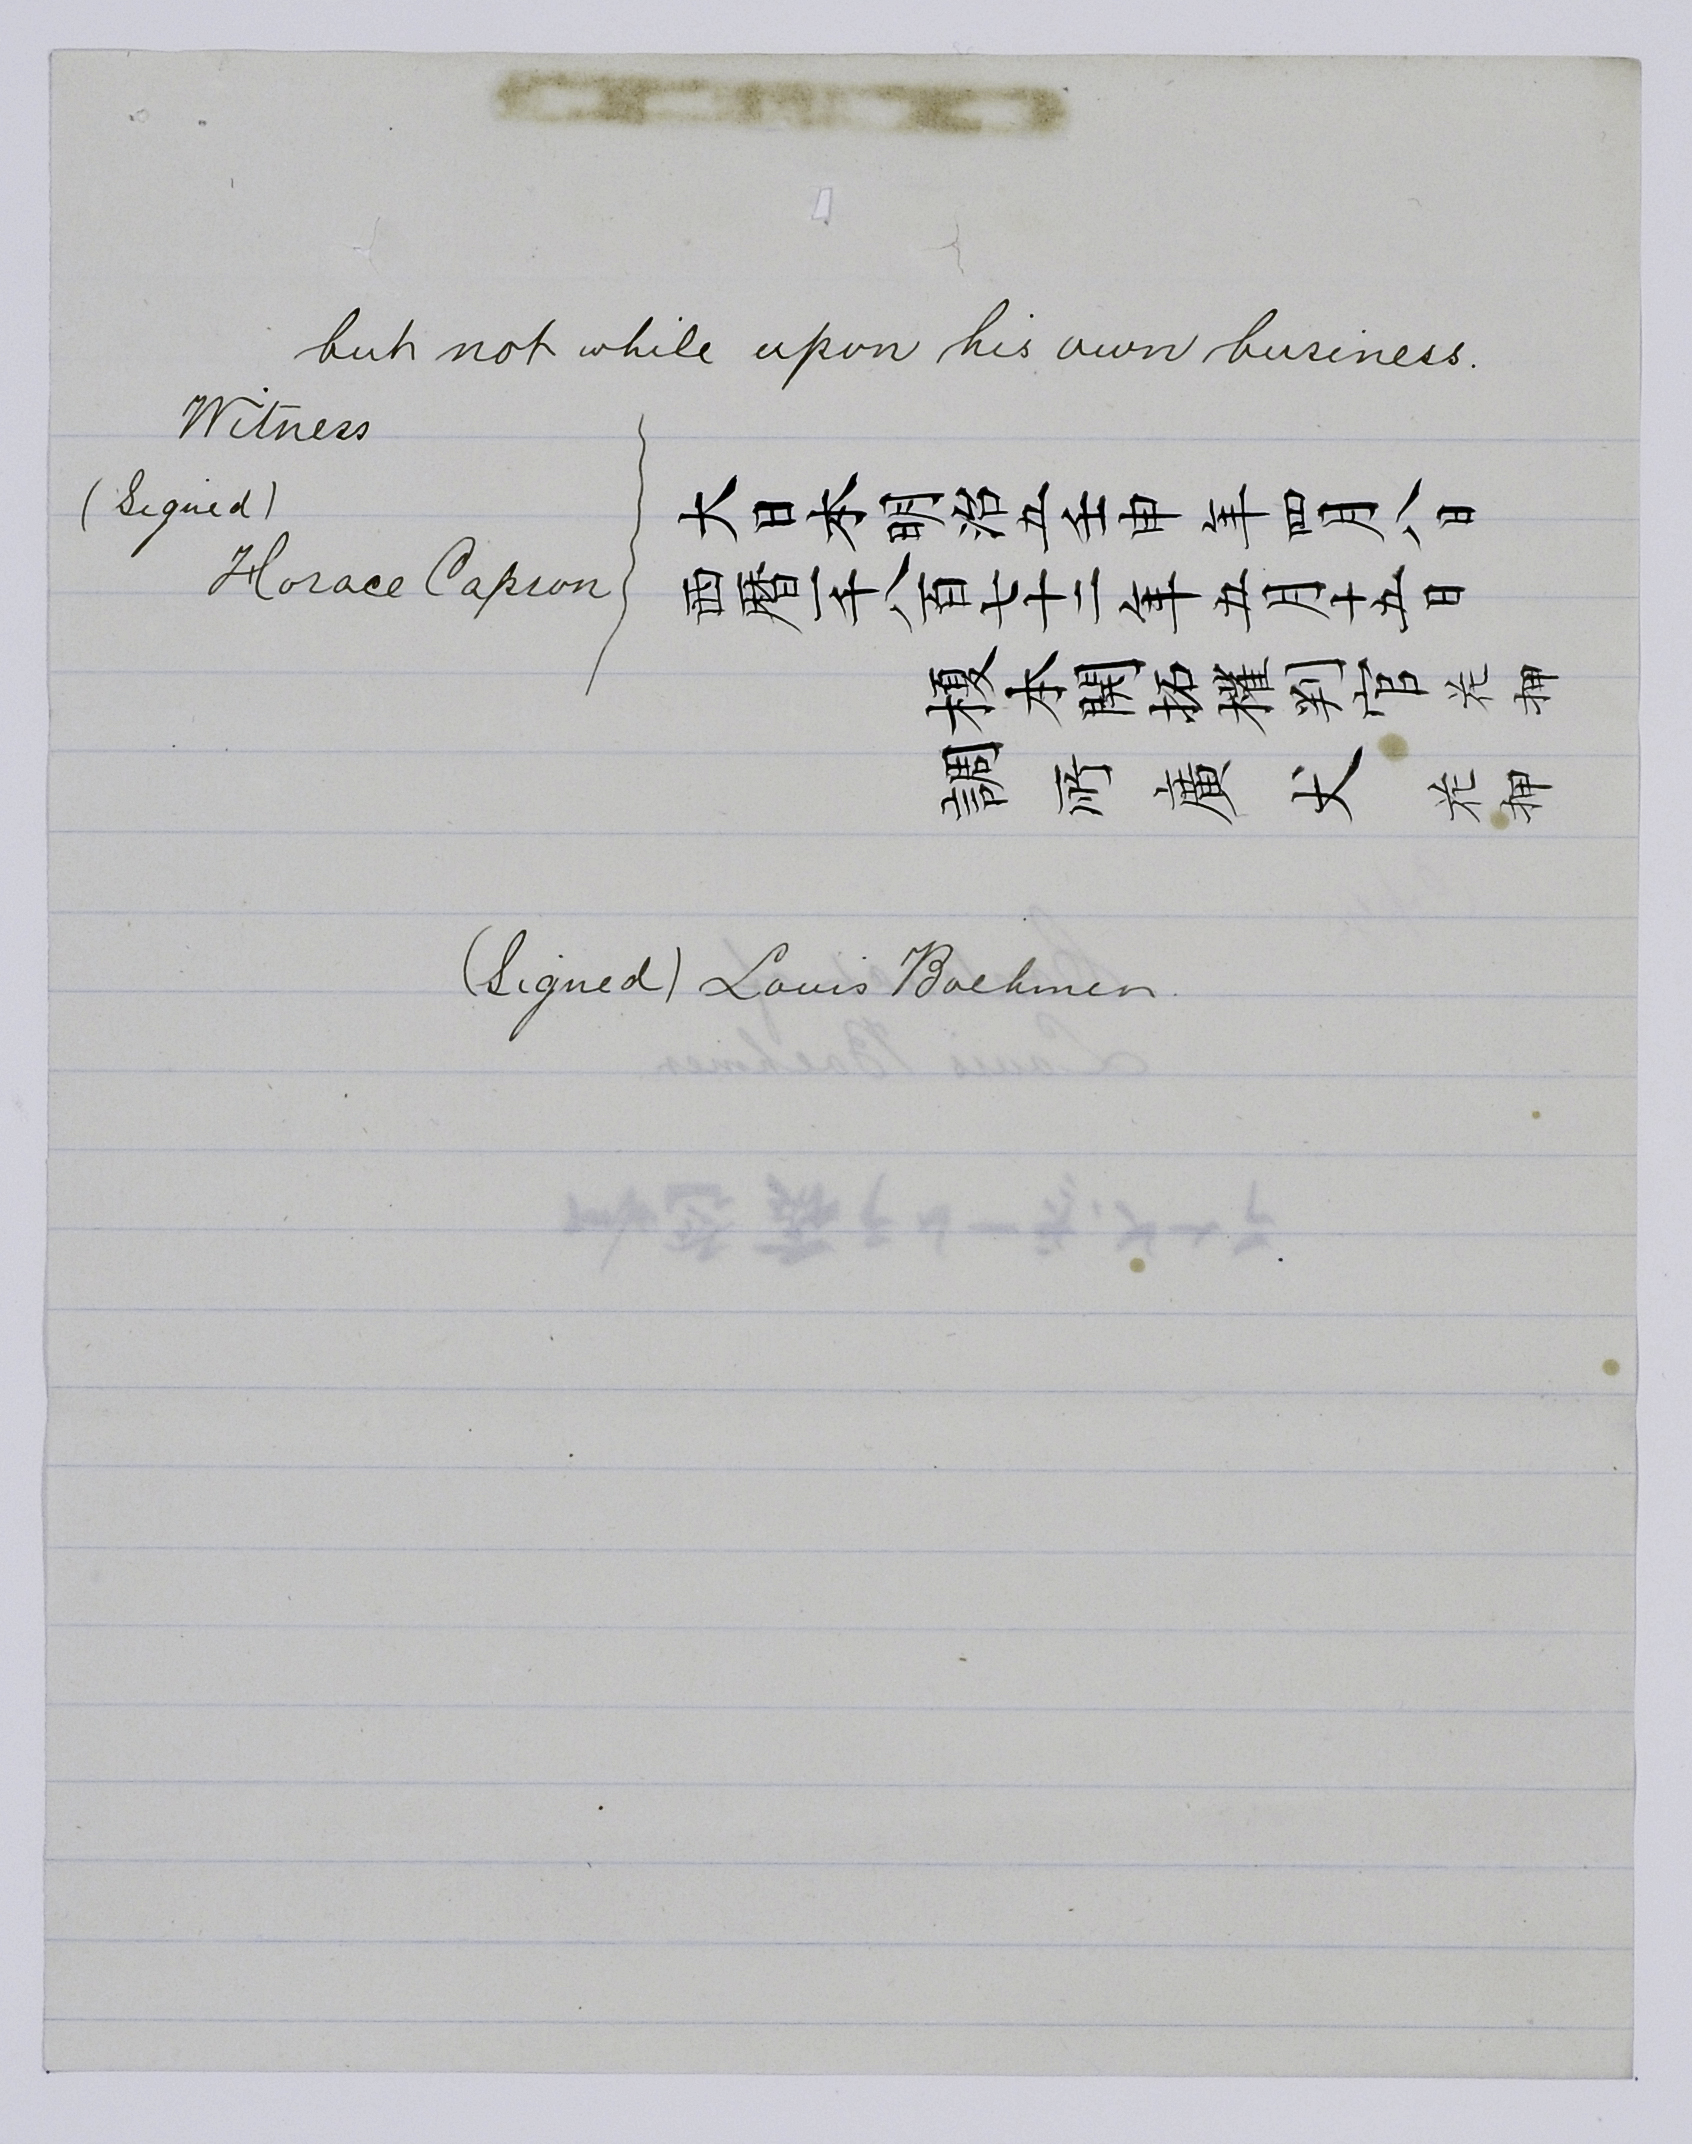 but not while upon his own business.
Witness
(Signed)
Horace Capron
大日本明治五壬申年四月八日
西曆一千八百七十二年五月十五日
榎本開拓權判官 花押
調所廣丈 花押
(Signed) Louis Boehmer.